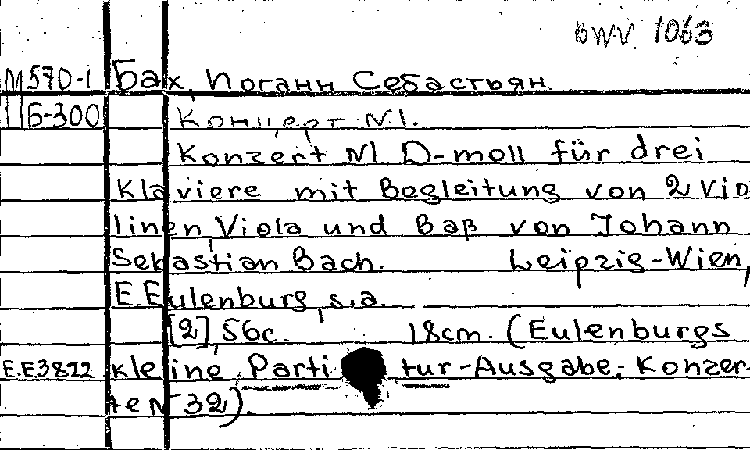 BWV 1063
М570-1 Бах, Иоганн Себастьян.
Б-300 Концерт №1.
Konzert N1 D-moll für drei
Klaviere mit Begleitung von 2 Vio
linen, Viola und Baß von Johann
Sebastian Bach. Leipzig-Wien,
E. Eulenburg, s.a.
[2], 56c. 18cm. (Eulenburgs
E.E3822 kleine Parti tur-Ausgabe; Konzer-
te N 32).